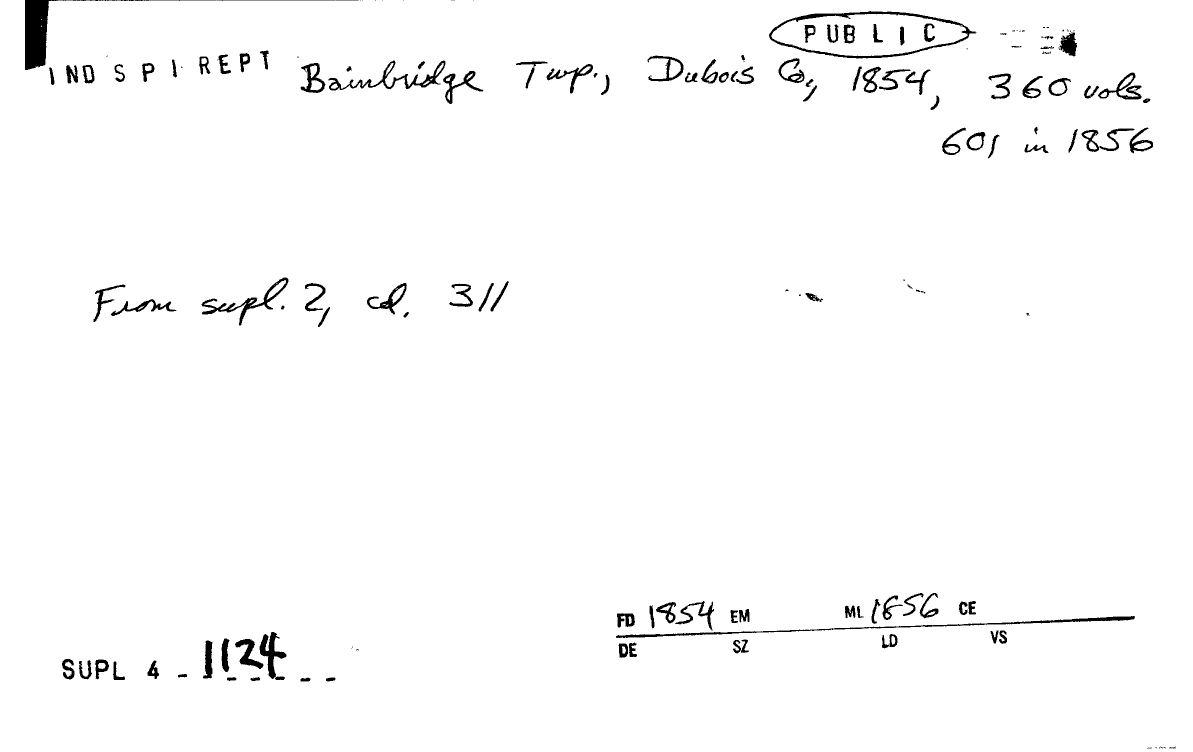 PUBLIC
IND S P I REPT Bainbridge Twp., Dubois Co., 1854, 360 vols.
601 in 1856
From supl. 2, cd. 311
FD 1854 EM ML 1856 CE
DE SZ LD VS
SUPL 4 - 1124